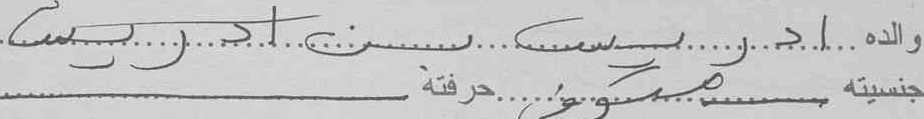 والده ادريس بن ادريس
جنسيته حرفته